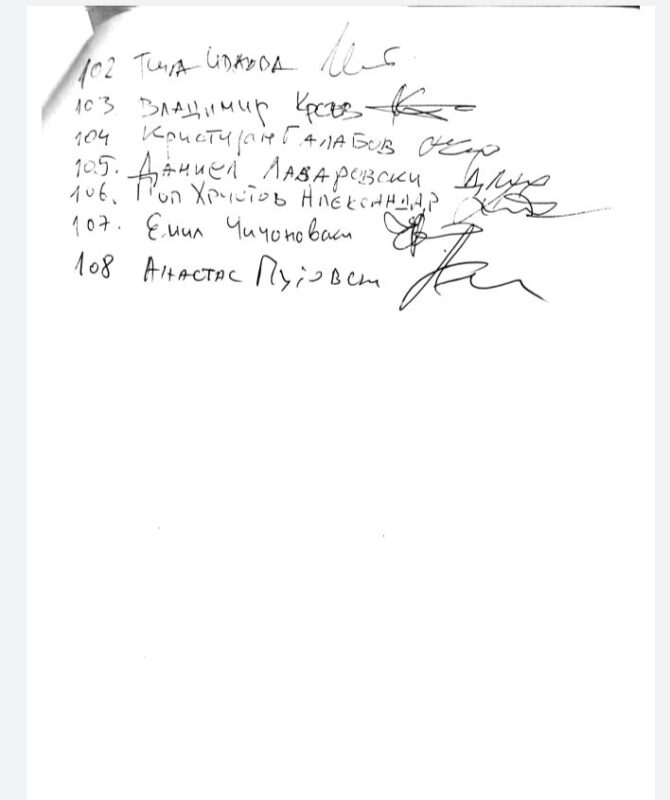 102 Тина Иванова
103 Владимир Крстев
104 Кристијан Галабов
105. Даниел Лазаровски
106. Поп Христов Александар
107. Емил Чичоновски
108 Анастас